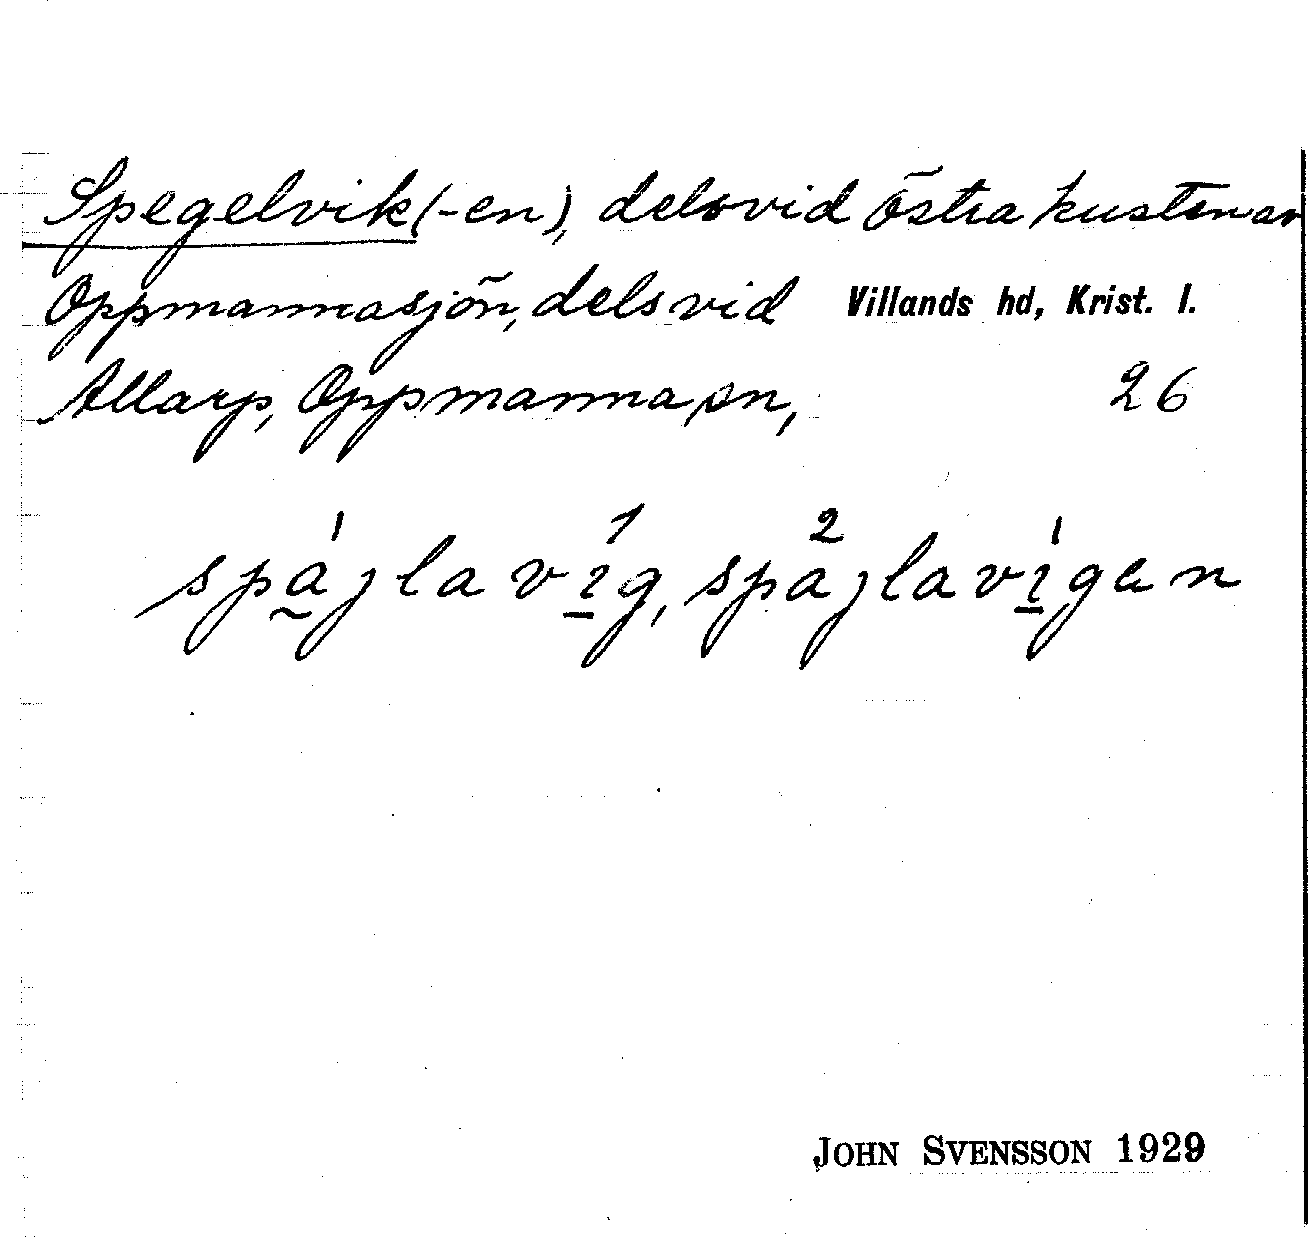 Spegelvik(-en), dels vid östra kusten av
Oppmannasjön, dels vid Villands hd, Krist. l.
Allarp, Oppmanna sn, 26
spájlavíg, spajlavígen
JOHN SVENSSON 1929